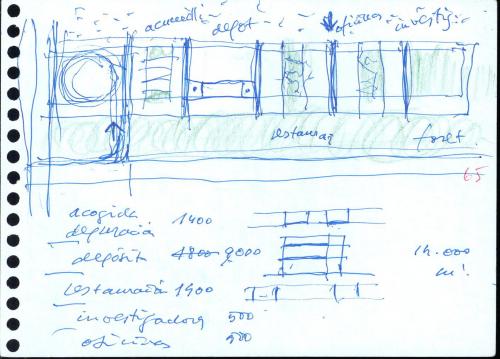 depot oficinas investig.
restauraç
foret
65
acogida 1400
depuració
depósit 4800 9000
14.000
m²
restauració 1400
investigadors 500
oficines 500